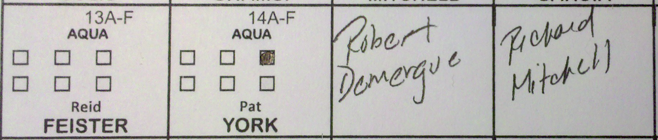 13A-F
AQUA
Reid
FEISTER
14A-F
AQUA
Pat
YORK
Robert
Demergue
Richard
Mitchell